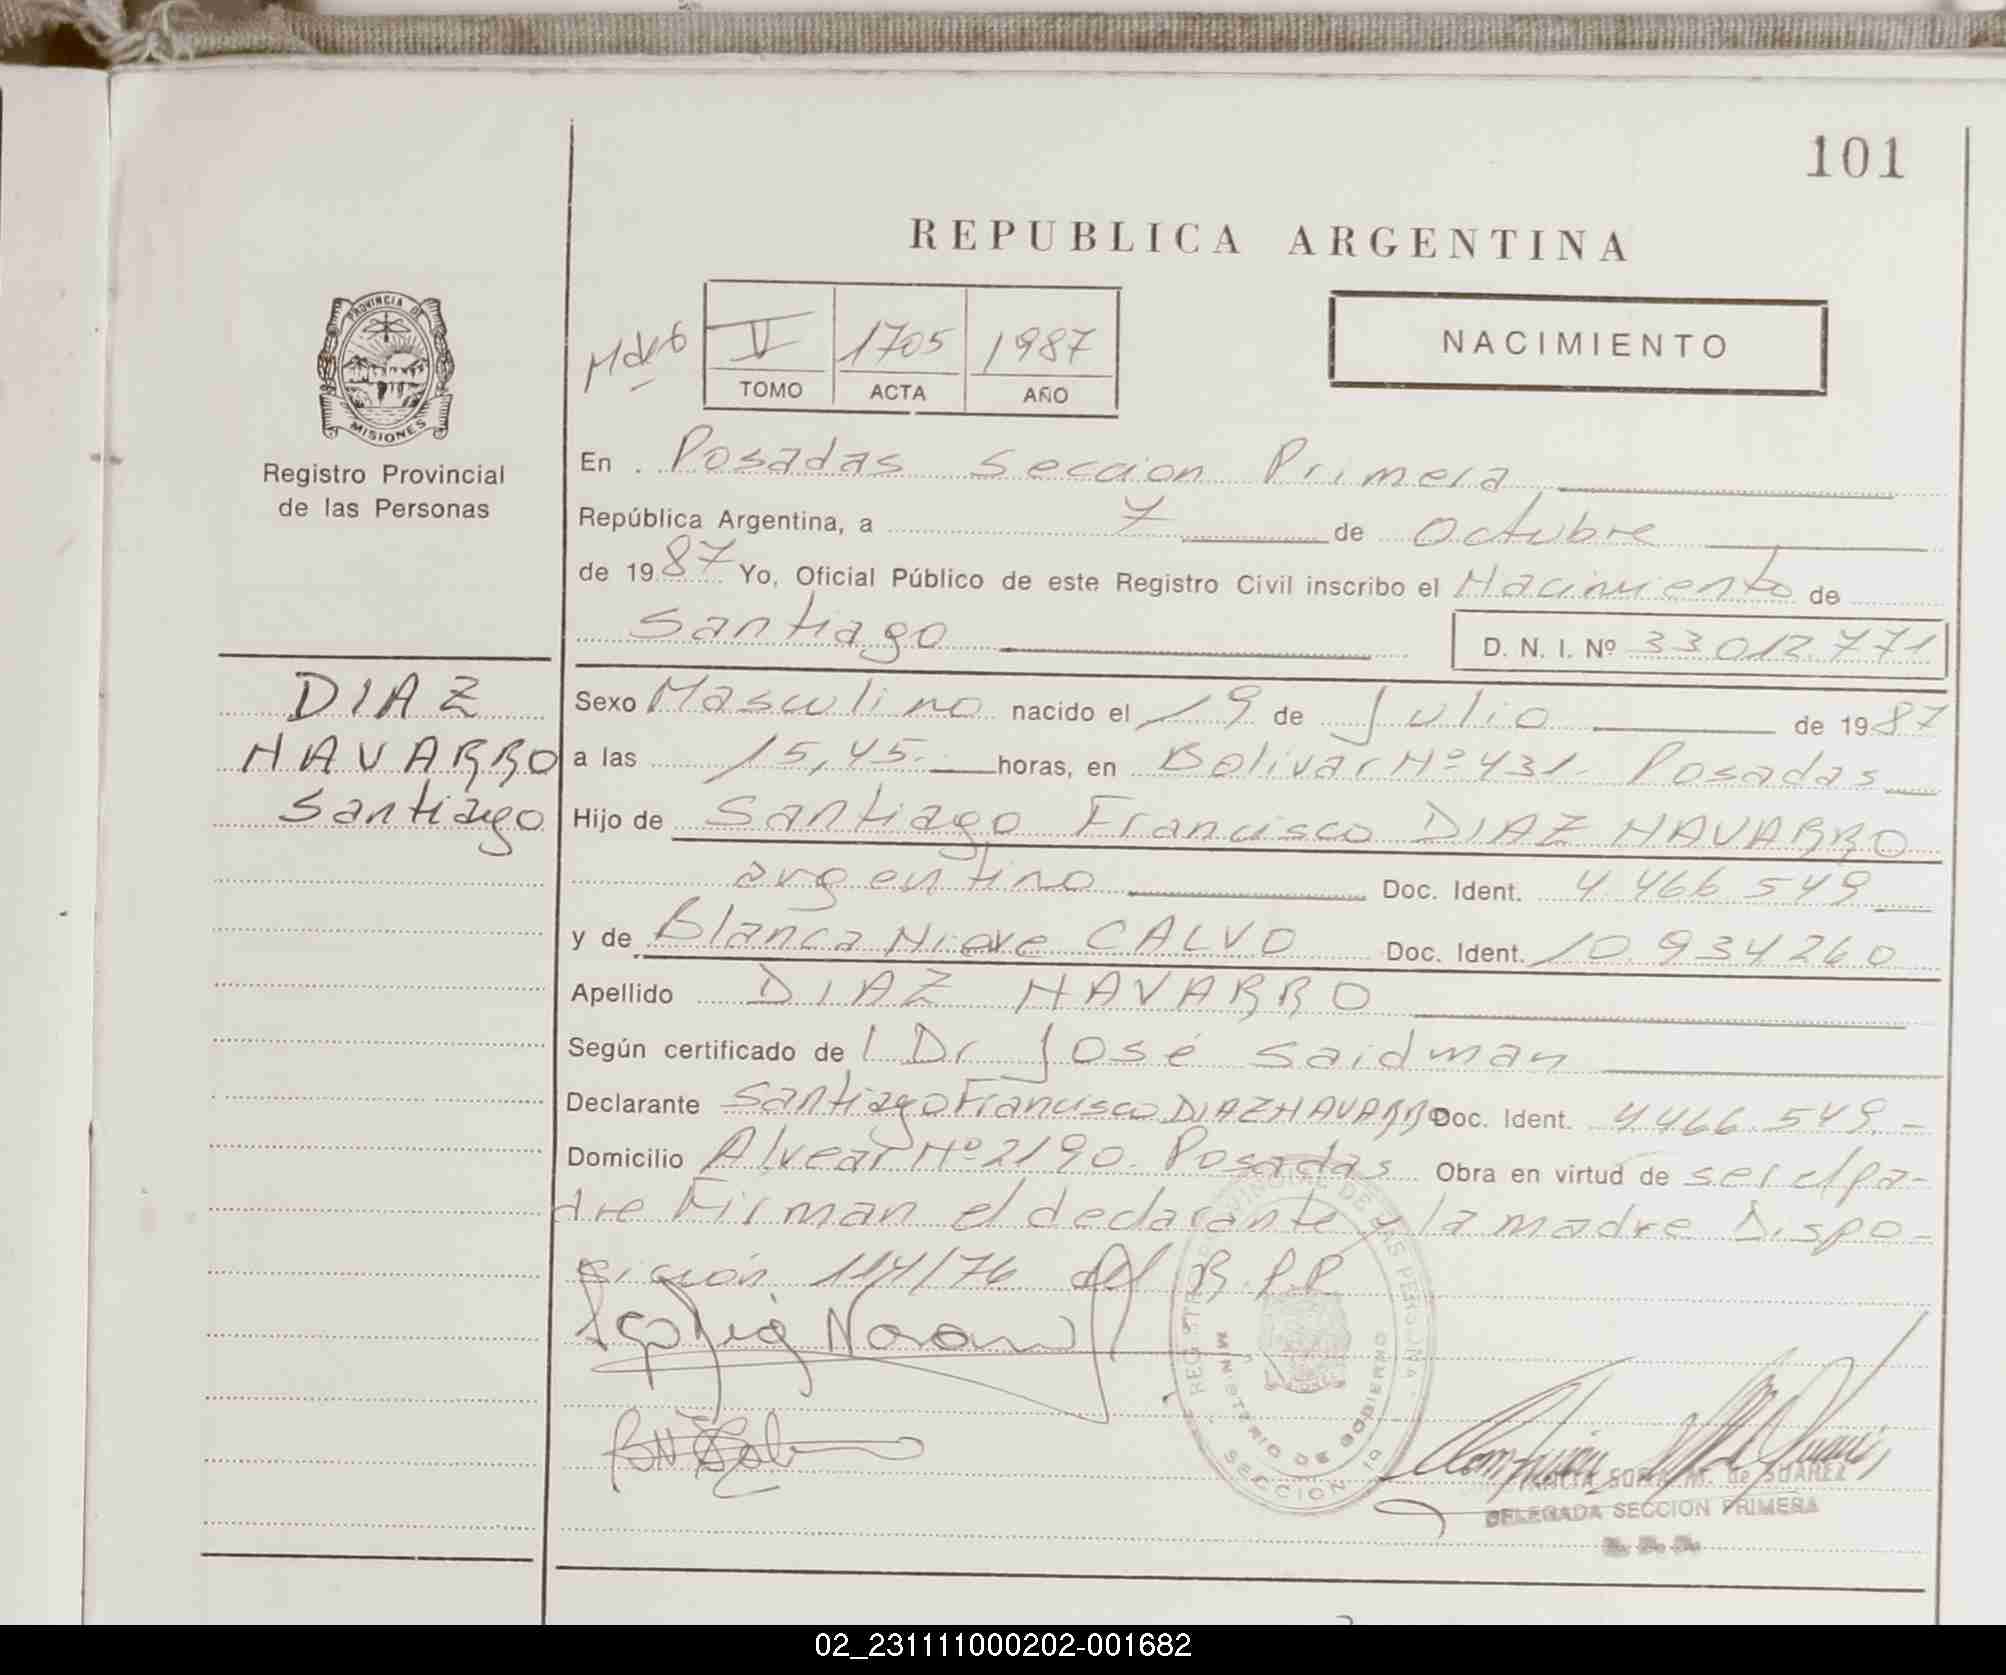 101
REPUBLICA ARGENTINA
PROVINCIA DE
MISIONES
Registro Provincial
de las Personas
V 1705 1987
TOMO ACTA AÑO
NACIMIENTO
En Posadas Seccion Primera
República Argentina, a 7 de Octubre
de 1987 Yo, Oficial Público de este Registro Civil inscribo el Nacimiento de
Santiago D. N. I. Nº 33 012.771
DIAZ
NAVARRO
Santiago
Sexo Masculino nacido el 19 de Julio de 1987
a las 15,45.- horas, en Bolivar Nº 431. Posadas
Hijo de Santiago Francisco DIAZ NAVARRO
argentino Doc. Ident. 4.466.549
y de Blanca Nieve CALVO Doc. Ident. 10.934260
Apellido DIAZ NAVARRO
Según certificado del Dr José Saidman
Declarante Santiago Francisco DIAZ NAVARRO Doc. Ident. 4.466.549.-
Domicilio Alvear Nº 2190. Posadas Obra en virtud de ser el pa-
dre Firman el declarante y la madre Dispo-
sición 114/76 del R.P.P.
REGISTRO PROVINCIAL DE LAS PERSONAS
MINISTERIO DE GOBIERNO
SECCION 1a
SONIA M. de SUAREZ
DELEGADA SECCION PRIMERA
02_231111000202-001682